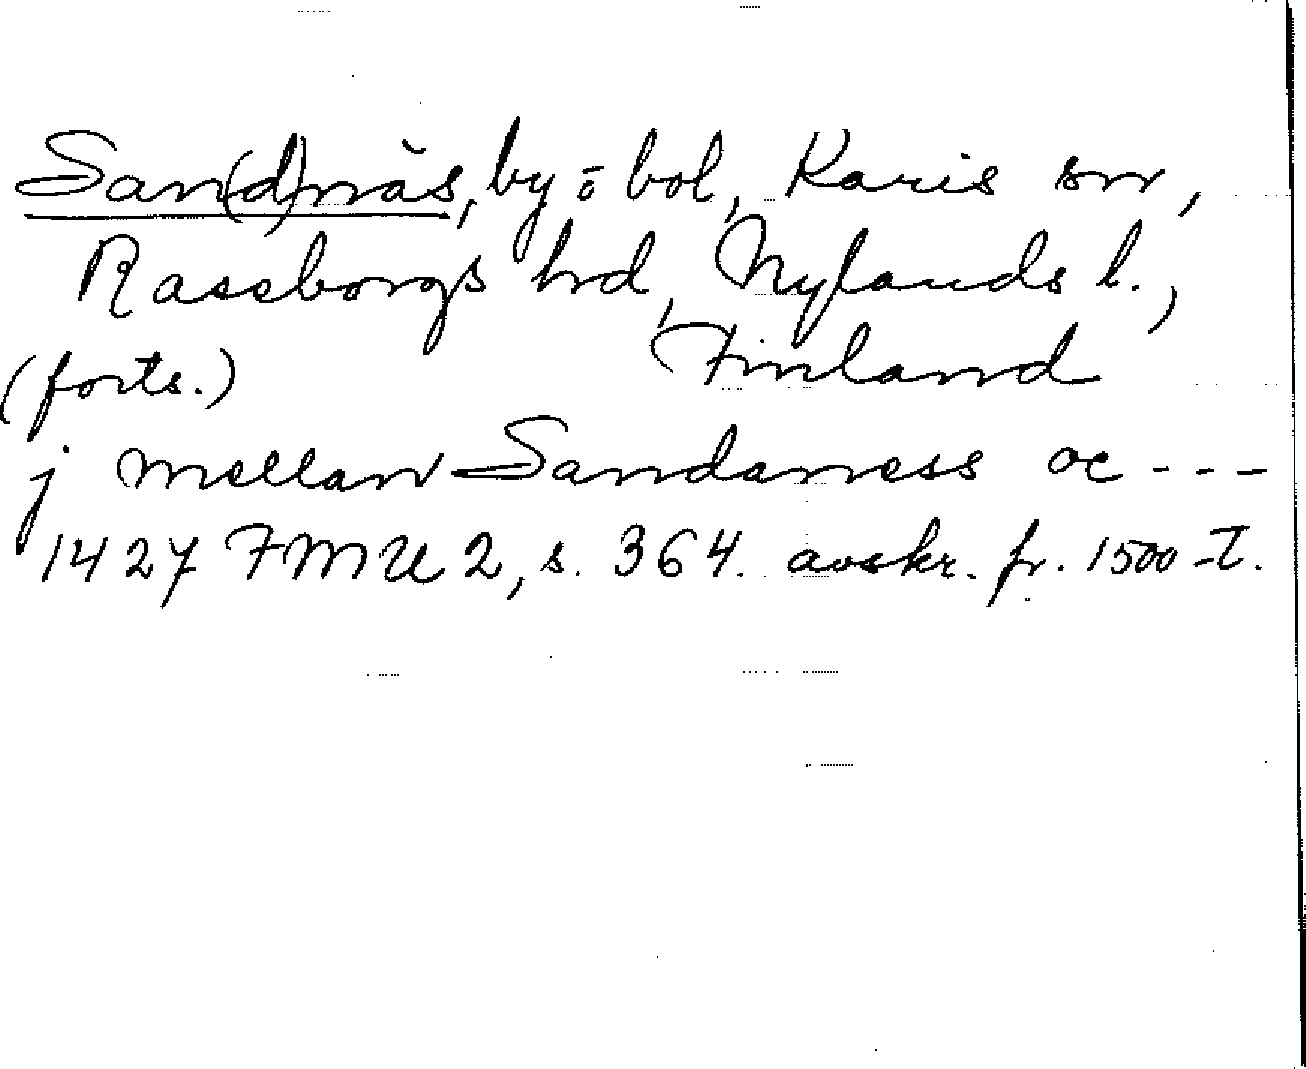 San(d)näs, by o bol, Karis sn,
Raseborgs hd, Nylands l.,
(forts.) Finland
j mellan Sandaness oc ---
1427 FMU 2, s. 364. avskr. fr. 1500-t.